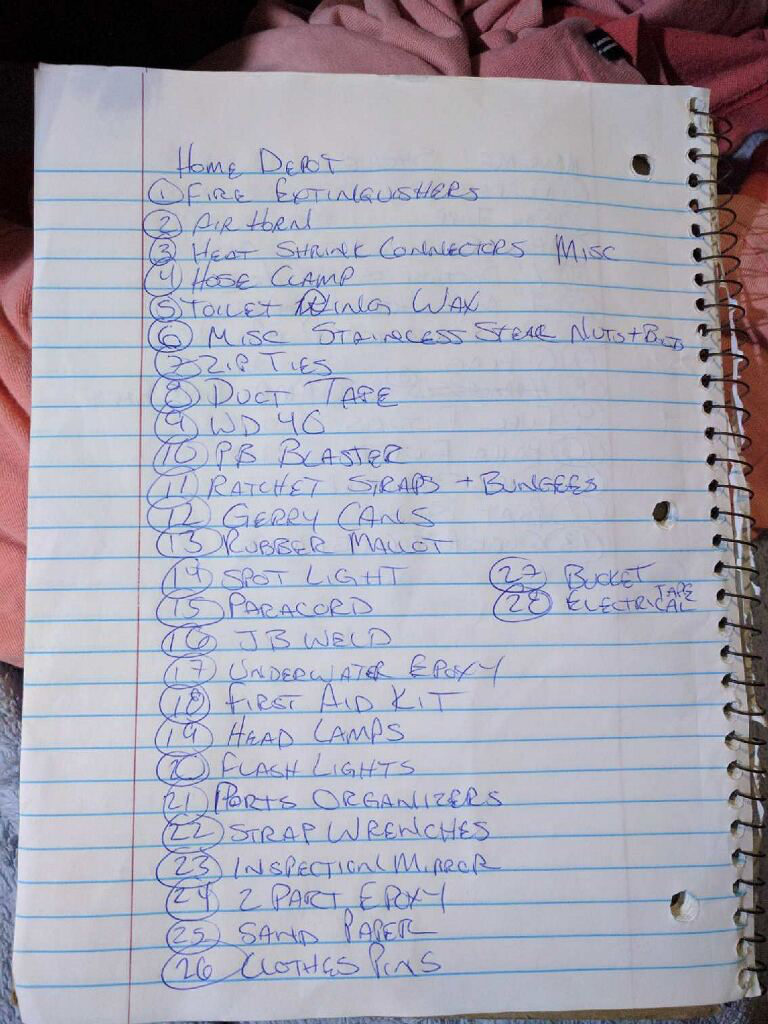 Home Depot
1 Fire Extinguishers
2 Air Horn
3 Heat Shrink Connectors Misc
4 Hose Clamp
5 Toilet Ring Wax
6 Misc Stainless Steal Nuts + Bolts
7 Zip Ties
8 Duct Tape
9 WD 40
10 PB Blaster
11 Ratchet Straps + Bungees
12 Gerry Cans
13 Rubber Mallot
14 Spot Light
15 Paracord
16 JB Weld
17 Underwater Epoxy
18 First Aid Kit
19 Head Lamps
20 Flash Lights
21 Parts Organizers
22 Strap Wrenches
23 Inspection Mirror
24 2 Part Epoxy
25 Sand Paper
26 Clothes Pins
27 Bucket
28 Electrical Tape